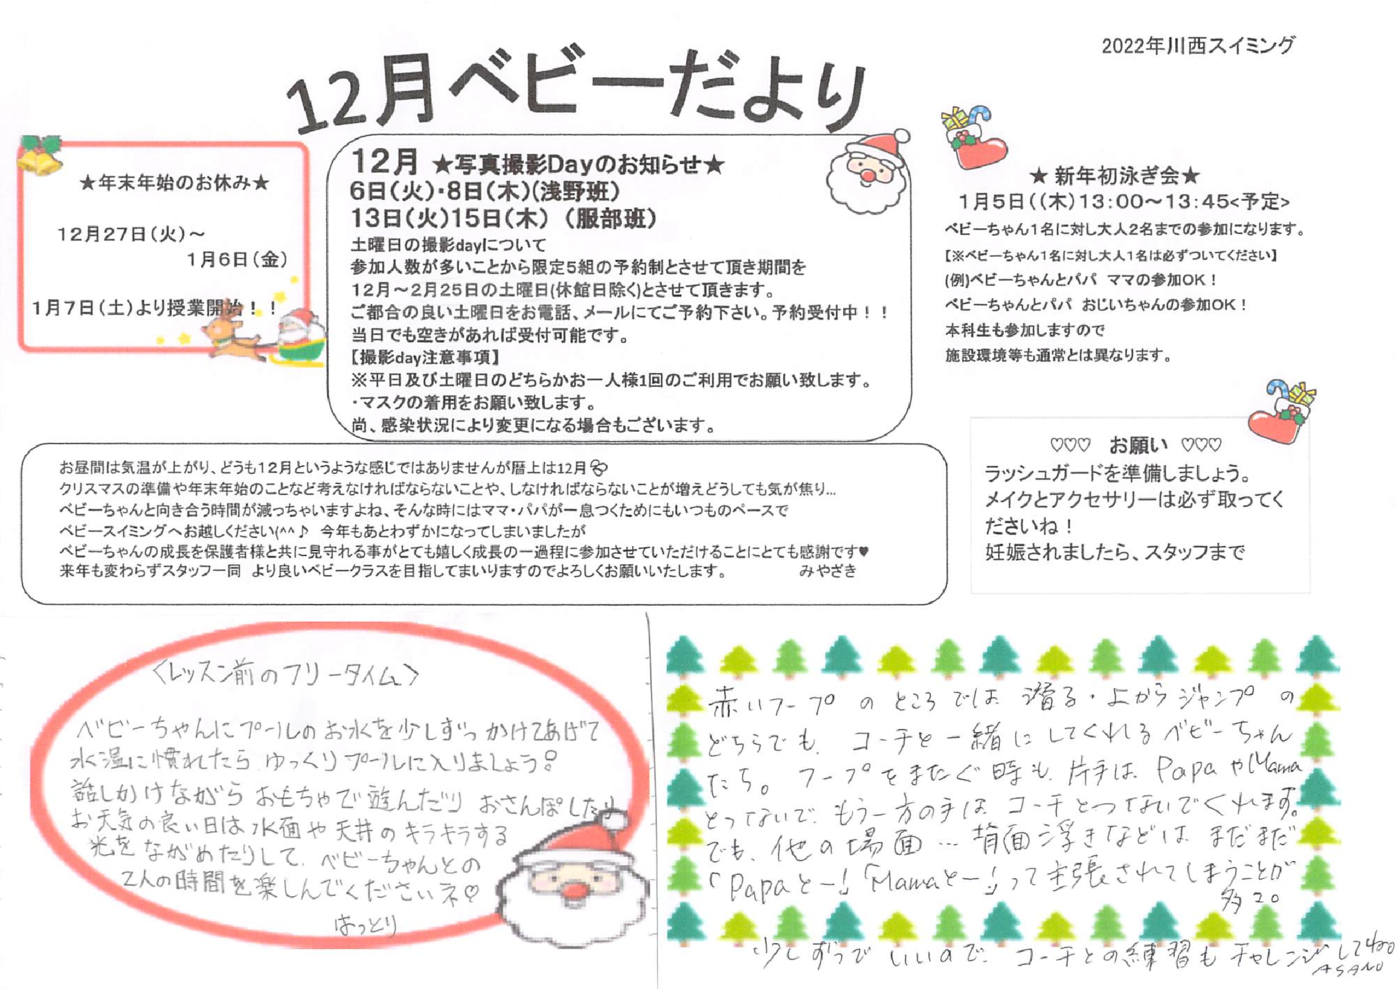 2022年川西スイミング
12月ベビーだより
★年末年始のお休み★
12月27日(火)～
1月6日(金)
1月7日(土)より授業開始！！
12月 ★写真撮影Dayのお知らせ★
6日(火)・8日(木)(浅野班)
13日(火)15日(木) (服部班)
土曜日の撮影dayについて
参加人数が多いことから限定5組の予約制とさせて頂き期間を
12月～2月25日の土曜日(休館日除く)とさせて頂きます。
ご都合の良い土曜日をお電話、メールにてご予約下さい。予約受付中！！
当日でも空きがあれば受付可能です。
【撮影day注意事項】
※平日及び土曜日のどちらかお一人様1回のご利用でお願い致します。
・マスクの着用をお願い致します。
尚、感染状況により変更になる場合もございます。
★ 新年初泳ぎ会★
1月5日((木)13:00～13:45<予定>
ベビーちゃん1名に対し大人2名までの参加になります。
【※ベビーちゃん1名に対し大人1名は必ずついてください】
(例)ベビーちゃんとパパ ママの参加OK！
ベビーちゃんとパパ おじいちゃんの参加OK！
本科生も参加しますので
施設環境等も通常とは異なります。
♡♡♡ お願い ♡♡♡
ラッシュガードを準備しましょう。
メイクとアクセサリーは必ず取ってく
ださいね！
妊娠されましたら、スタッフまで
お昼間は気温が上がり、どうも12月というような感じではありませんが暦上は12月
クリスマスの準備や年末年始のことなど考えなければならないことや、しなければならないことが増えどうしても気が焦り…
ベビーちゃんと向き合う時間が減っちゃいますよね、そんな時にはママ・パパが一息つくためにもいつものペースで
ベビースイミングへお越しください(^^♪ 今年もあとわずかになってしまいましたが
ベビーちゃんの成長を保護者様と共に見守れる事がとても嬉しく成長の一過程に参加させていただけることにとても感謝です♥
来年も変わらずスタッフ一同 より良いベビークラスを目指してまいりますのでよろしくお願いいたします。 みやざき
〈レッスン前のフリータイム〉
ベビーちゃんにプールのお水を少しずつかけてあげて
水温に慣れたら、ゆっくりプールに入りましょう！
話しかけながら おもちゃで遊んだり おさんぽしたり
お天気の良い日は、水面や天井のキラキラする
光をながめたりして、ベビーちゃんとの
2人の時間を楽しんでくださいネ♡
はっとり
赤いフープのところでは 潜る・上からジャンプの
どちらでも、コーチと一緒にしてくれるベビーちゃん
たち。フープをまたぐ時も、片手は PapaやMama
とつないで、もう一方の手は、コーチとつないでくれます。
でも、他の場面…背面浮きなどは、まだまだ
「Papaとー!」「Mamaとー!」って主張されてしまうことが
多々。
少しずつでいいので、コーチとの練習も チャレンジして
ASANO